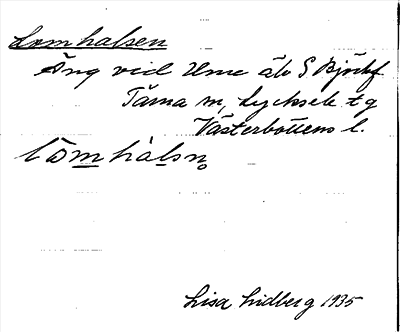 Lomhalsen
Äng vid Ume älv S Björkf
Tärna sn, Lycksele tg
Västerbottens l.
lòmhàlsn̥
Lisa Lidberg 1935